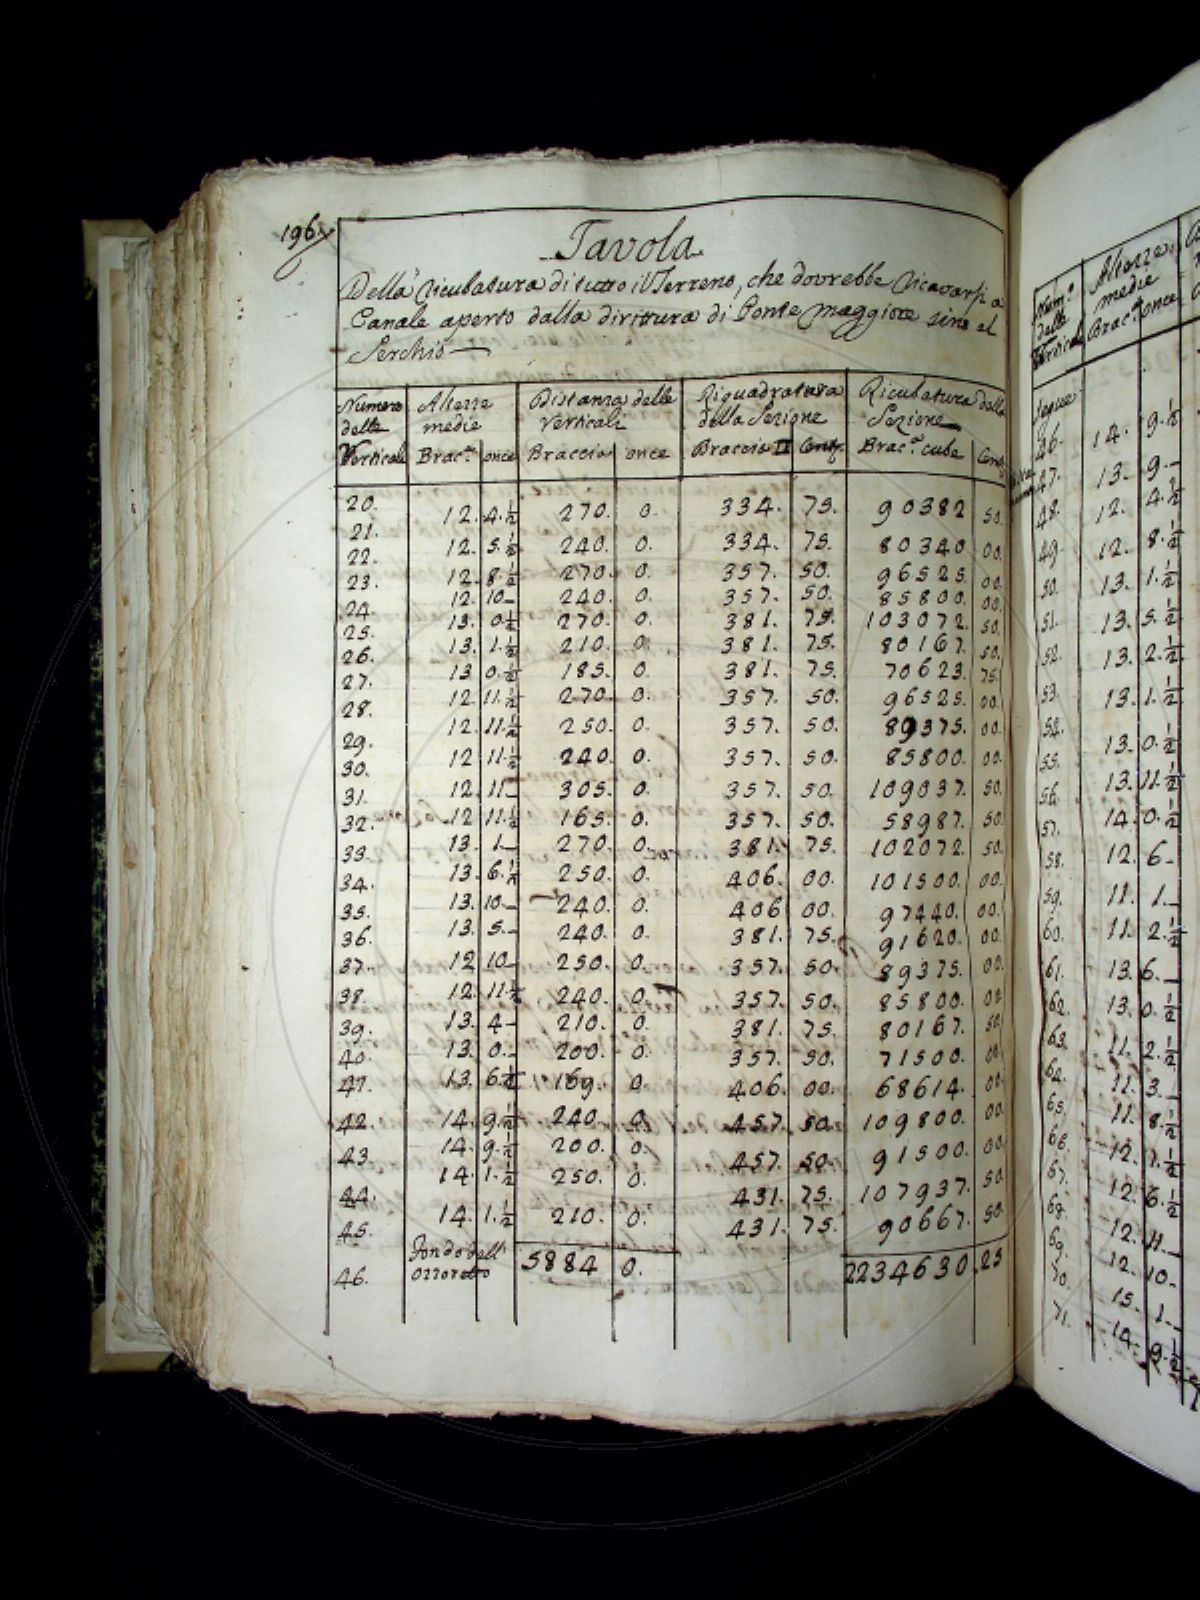 196
Tavola
Della Ricubatura di tutto il Terreno, che dovrebbe Ricavarsi a
Canale aperto dalla dirittura di Ponte maggiore sino al
Serchio
Numero delle Verticali | Altezze medie Brac.ª once | Distanza delle Verticali Braccia once | Riquadratura della Sezione Braccia □ Cent. | Ricubatura della Sezione Brac.ª cube Cent.
20.
12. 4.½ 270. 0. 334. 75. 90382 50.
21.
12. 5.½ 240. 0. 334. 75. 80340 00.
22.
12. 8.½ 270. 0. 357. 50. 96525. 00.
23.
12. 10 240. 0. 357. 50. 85800. 00.
24.
13. 0½ 270. 0. 381. 75. 103072. 50.
25.
13. 1.½ 210. 0. 381. 75. 80167. 50.
26.
13 0.½ 185. 0. 381. 75. 70623. 75.
27.
12 11.½ 270. 0. 357. 50. 96525. 00.
28.
12. 11.½ 250. 0. 357. 50. 89375. 00.
29.
12 11.½ 240. 0. 357. 50. 85800. 00.
30.
12. 11 305. 0. 357. 50. 109037. 50.
31.
12 11.½ 165. 0. 357. 50. 58987. 50.
32.
13. 1 270. 0. 381. 75. 102072. 50.
33.
13. 6.½ 250. 0. 406. 00. 101500. 00.
34.
13. 10 240. 0. 406 00. 97440. 00.
35.
13. 5. 240. 0. 381. 75. 91620. 00.
36.
12 10 250. 0. 357. 50. 89375. 00.
37.
12 11.½ 240. 0. 357. 50. 85800. 00.
38.
13. 4 210. 0. 381. 75. 80167. 50.
39.
13. 0. 200. 0. 357. 50. 71500. 00.
40.
13. 6.½ 169. 0. 406. 00. 68614. 00.
41.
14. 9.½ 240. 0. 457. 50. 109800. 00.
42.
14. 9.½ 200. 0. 457. 50. 91500. 00.
43.
14. 1.½ 250. 0. 431. 75. 107937. 50.
44.
14. 1.½ 210. 0. 431. 75. 90667. 50.
45.
Fondo dell'
46. Ozzoretto 5884 0. 2234630.25
Num.º delle Verticali | Altezze medie Brac.ª once
segue
46. 14. 9.½
47. 13. 9.
48. 12. 4.½
49. 12. 8.½
50. 13. 1.½
51. 13. 5.½
52. 13. 2.½
53. 13. 1.½
54. 13. 0.½
55. 13. 11.½
56. 14. 0.½
57. 12. 6
58. 11. 1.
59. 11. 2.½
60. 13. 6.
61. 13. 0.½
62. 11. 2.½
63. 11. 3.
64. 11. 8.½
65.
66. 12. 6.½
67. 12. 11.
68. 12. 10.
69. 15. 1.
70. 14. 9.½
71.